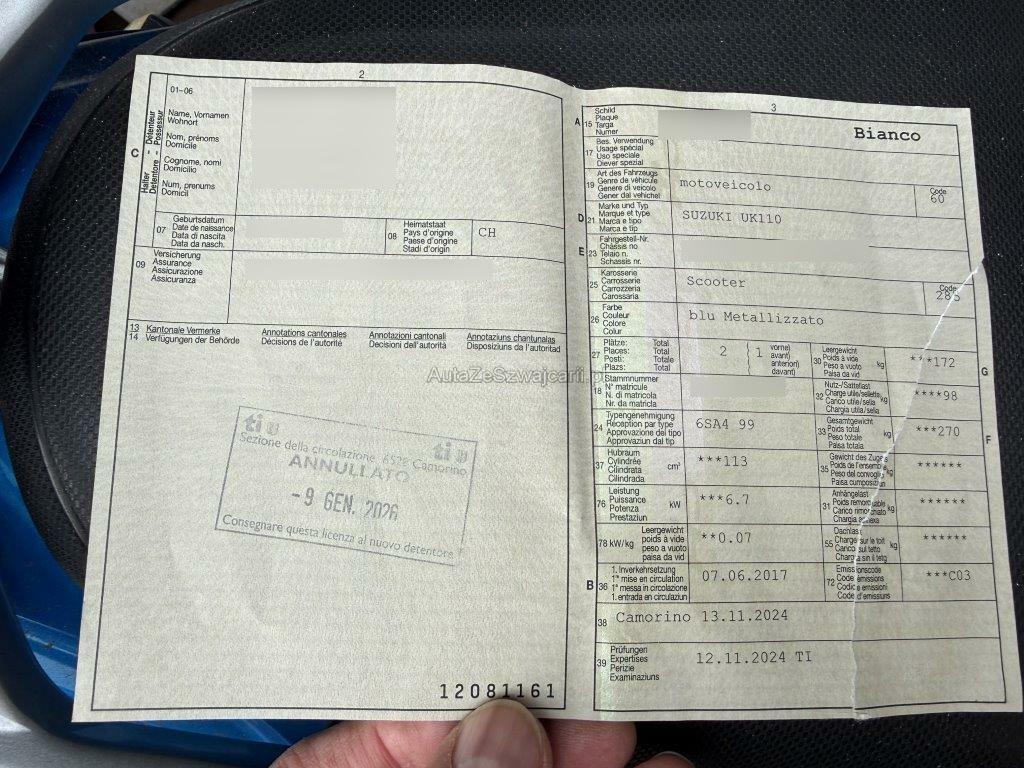 2
01-06
Name, Vornamen
Wohnort
Nom, prénoms
Domicile
Cognome, nomi
Domicilio
Num, prenums
Domicil
C
Halter - Détenteur
Detentore - Possessur
07
Geburtsdatum
Date de naissance
Data di nascita
Data da nasch.
08
Heimatstaat
Pays d'origine
Paese d'origine
Stadi d'origin
CH
09
Versicherung
Assurance
Assicurazione
Assicuranza
13 Kantonale Vermerke Annotations cantonales Annotazioni cantonali Annotaziuns chantunalas
14 Verfügungen der Behörde Décisions de l'autorité Decisioni dell'autorità Disposiziuns da l'autoritad
AutaZeSzwajcarii.p
ti
ti
Sezione della circolazione 6528 Camorino
ANNULLATO
-9 GEN. 2026
Consegnare questa licenza al nuovo detentore
12081161
3
A 15
Schild
Plaque
Targa
Numer
Bianco
17
Bes. Verwendung
Usage spécial
Uso speciale
Diever spezial
19
Art des Fahrzeugs
Genre de véhicule
Genere di veicolo
Gener dal vehichel
motoveicolo
Code
60
D 21
Marke und Typ
Marque et type
Marca e tipo
Marca e tip
SUZUKI UK110
E 23
Fahrgestell-Nr.
Châssis no
Telaio n.
Schassis nr.
25
Karosserie
Carrosserie
Carrozzeria
Carossaria
Scooter
Code
285
26
Farbe
Couleur
Colore
Colur
blu Metallizzato
27
Plätze: Total
Places: Total
Posti: Totale
Plazs: Total
2 1
vorne)
avant)
anteriori)
davant)
30
Leergewicht
Poids à vide
Peso a vuoto
Paisa da vid
kg
***172
G
18
Stammnummer
N° matricule
N. di matricola
Nr. da matricla
32
Nutz-/Sattellast
Charge utile/sellette
Carico utile/sella
Chargia utila/sella
kg
****98
24
Typengenehmigung
Réception par type
Approvazione del tipo
Approvaziun dal tip
6SA4 99
33
Gesamtgewicht
Poids total
Peso totale
Paisa totala
kg
***270
F
37
Hubraum
Cylindrée
Cilindrata
Cilindrada
cm³
***113
35
Gewicht des Zuges
Poids de l'ensemble
Peso del convoglio
Paisa cumposiziun
kg
******
76
Leistung
Puissance
Potenza
Prestaziun
kW
***6.7
31
Anhängelast
Poids remorquable
Carico rimorchiato
Chargia annexa
kg
******
78 kW/kg
Leergewicht
poids à vide
peso a vuoto
paisa da vid
**0.07
55
Dachlast
Charge sur le toit
Carico sul tetto
Chargia sin il tetg
kg
******
B 36
1. Inverkehrsetzung
1re mise en circulation
1a messa in circolazione
1. entrada en circulaziun
07.06.2017
72
Emissionscode
Code émissions
Codice emissioni
Code d'emissiuns
***C03
38
Camorino 13.11.2024
39
Prüfungen
Expertises
Perizie
Examinaziuns
12.11.2024 TI